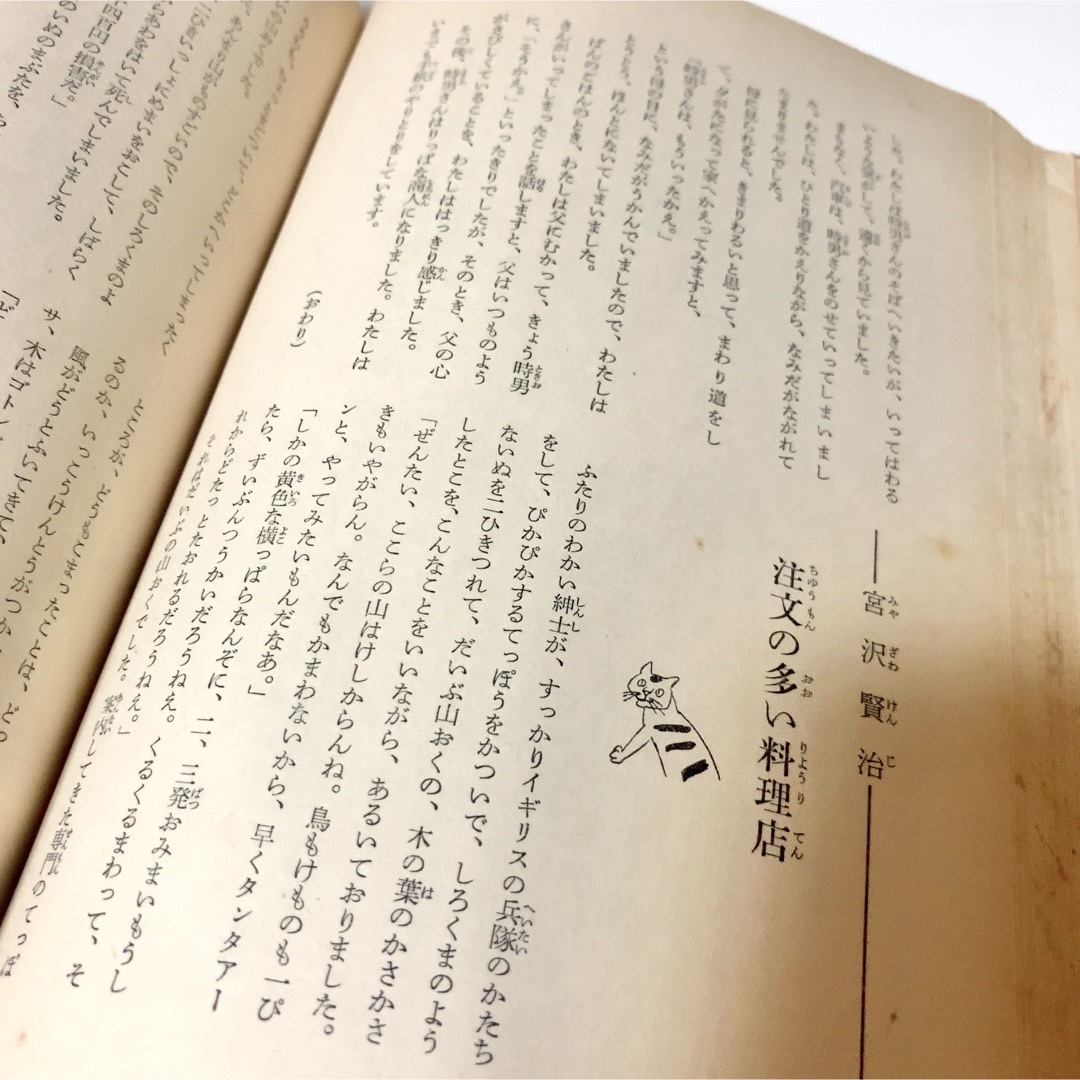 した。わたしは時男さんのそばへいきたいが、いってはわる
いような気がして、遠くから見ていました。
まもなく、汽車は、時男さんをのせていってしまいまし
た。わたしは、ひとり道をかえりながら、なみだがながれて
たまりませんでした。
母に見られると、きまりわるいと思って、まわり道をし
て、夕がたになって家へかえってみますと、
「時男さんは、もういったかえ。」
という母の目に、なみだがうかんでいましたので、わたしは
とうとう、ほんとにないてしまいました。
ばんのごはんのとき、わたしは父にむかって、きょう時男
さんがいってしまったことを話しますと、父はいつものよう
に、「そうかえ。」といったきりでしたが、そのとき、父の心
がさびしくていることを、わたしははっきり感じました。
その後、時男さんはりっぱな商人になりました。わたしは
いまでも手紙のやりとりをしています。
(おわり)
宮沢賢治
注文の多い料理店
ふたりのわかい紳士が、すっかりイギリスの兵隊のかたち
をして、ぴかぴかするてっぽうをかついで、しろくまのよう
ないぬを二ひきつれて、だいぶ山おくの、木の葉のかさかさ
したとこを、こんなことをいいながら、あるいておりました。
「ぜんたい、ここらの山はけしからんね。鳥もけものも一ぴ
きもいやがらん。なんでもかまわないから、早くタンタアー
ンと、やってみたいもんだなあ。」
「しかの黄色な横っぱらなんぞに、二、三発おみまいもうし
たら、ずいぶんつうかいだろうねえ。くるくるまわって、そ
れからどたっとたおれるだろうねえ。」
それはだいぶの山おくでした。案内してきた専門のてっぽ
二ひきいっしょにめまいをおこして、しばらく
らあわをはいて死んでしまいました。
四百円の損害だ。」
のいぬのまぶたを、
ところが、どうもこまったことは、どっ
るのか、いっこうけんとうがつか
風がどうとふいてきて、
サ、木はゴトン